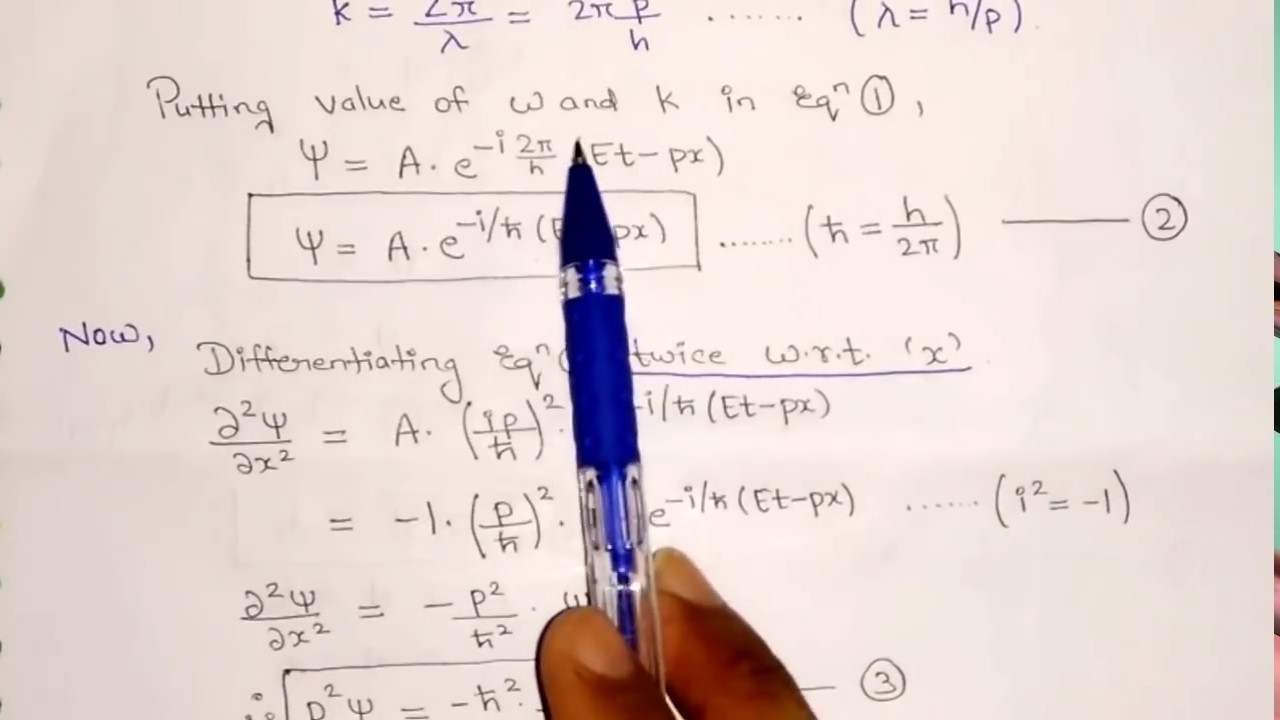 k = 2π/λ = 2π p/h ....... (λ = h/p)
Putting value of ω and k in Eqⁿ ①,
Ψ = A. e^-i 2π/h (Et-px)
Ψ = A. e^-i/ħ ( px) ....... (ħ = h/2π) —— ②
Now,
Differentiating Eqⁿ twice w.r.t. (x)
∂²Ψ/∂x² = A. (ip/ħ)². -i/ħ (Et-px)
= -1. (p/ħ)². e^-i/ħ (Et-px) ...... (i² = -1)
∂²Ψ/∂x² = - p²/ħ² .
∴ p²Ψ = -ħ². — ③